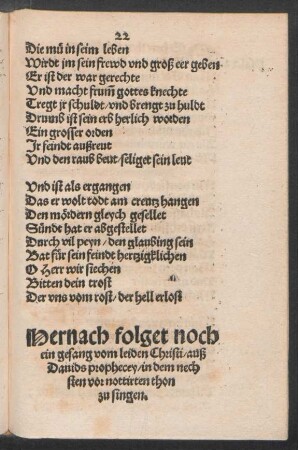 22
Die mü in seim leben
Wirdt jm sein frewd vnd groß eer geben
Er ist der war gerechte
Vnd macht frumm gottes knechte
Tregt jr schuldt/vnd brengt zu huldt
Drumb ist sein erb herlich worden
Ein grosser orden
Jr feindt außreut
Vnd den raub beut/seliget sein leut
Vnd ist als ergangen
Das er wolt tödt am creutz hangen
Den mördern gleych gesellet
Sündt hat er abgestellet
Durch vil peyn/den glaubing sein
Bat für sein feindt hertzigklichen
O Herr wir siechen
Bitten dein trost
Der vns vom rost/der hell erlost
Hernach folget noch
ein gesang vom leiden Christi/auß
Dauids prophecey/in dem nech
sten vor nottirten thon
zu singen.